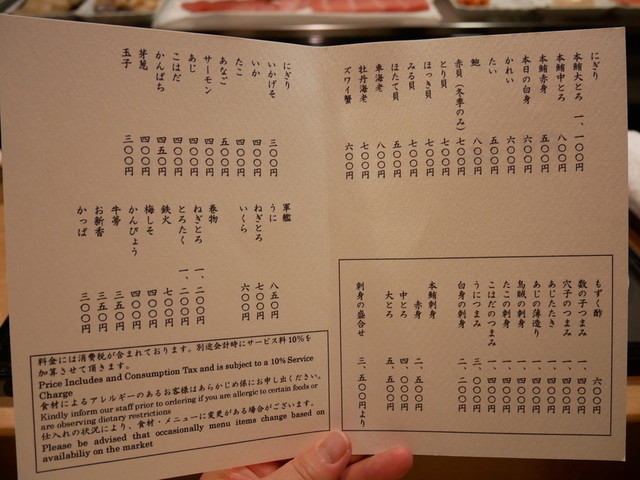 にぎり
本鮪大とろ 一、一〇〇円
本鮪中とろ 八〇〇円
本鮪赤身 五〇〇円
本日の白身 六〇〇円
かれい 六〇〇円
たい 五〇〇円
鮑 八〇〇円
赤貝(冬季のみ) 七〇〇円
とり貝 七〇〇円
ほっき貝 七〇〇円
みる貝 七〇〇円
ほたて貝 五〇〇円
車海老 八〇〇円
牡丹海老 七〇〇円
ズワイ蟹 六〇〇円
もずく酢 六〇〇円
数の子つまみ 一、四〇〇円
穴子のつまみ 一、四〇〇円
あじたたき 一、四〇〇円
あじの薄造り 一、四〇〇円
烏賊の刺身 一、四〇〇円
たこの刺身 一、四〇〇円
こはだのつまみ 一、四〇〇円
うにつまみ 三、〇〇〇円
白身の刺身 二、二〇〇円
本鮪刺身
赤身 二、五〇〇円
中とろ 四、〇〇〇円
大とろ 五、五〇〇円
刺身の盛合せ 三、五〇〇円より
にぎり
いかげそ 三〇〇円
いか 四〇〇円
たこ 四〇〇円
あなご 五〇〇円
サーモン 四〇〇円
あじ 四〇〇円
こはだ 四〇〇円
かんぱち 四五〇円
芽葱 四〇〇円
玉子 三〇〇円
軍艦
うに 八五〇円
ねぎとろ 七〇〇円
いくら 六〇〇円
巻物
ねぎとろ 一、二〇〇円
とろたく 一、二〇〇円
鉄火 七〇〇円
梅しそ 四〇〇円
かんぴょう 四〇〇円
牛蒡 三五〇円
お新香 三五〇円
かっぱ 三〇〇円
料金には消費税が含まれております。別途会計時にサービス料10%を
加算させて頂きます。
Price Includes and Consumption Tax and is subject to a 10% Service
Charge
食材によるアレルギーのあるお客様はあらかじめ係にお申し出ください。
Kindly inform our staff prior to ordering if you are allergic to certain foods or
are observing dietary restrictions
仕入れの状況により、食材・メニューに変更がある場合がございます。
Please be advised that occasionally menu items change based on
availability on the market